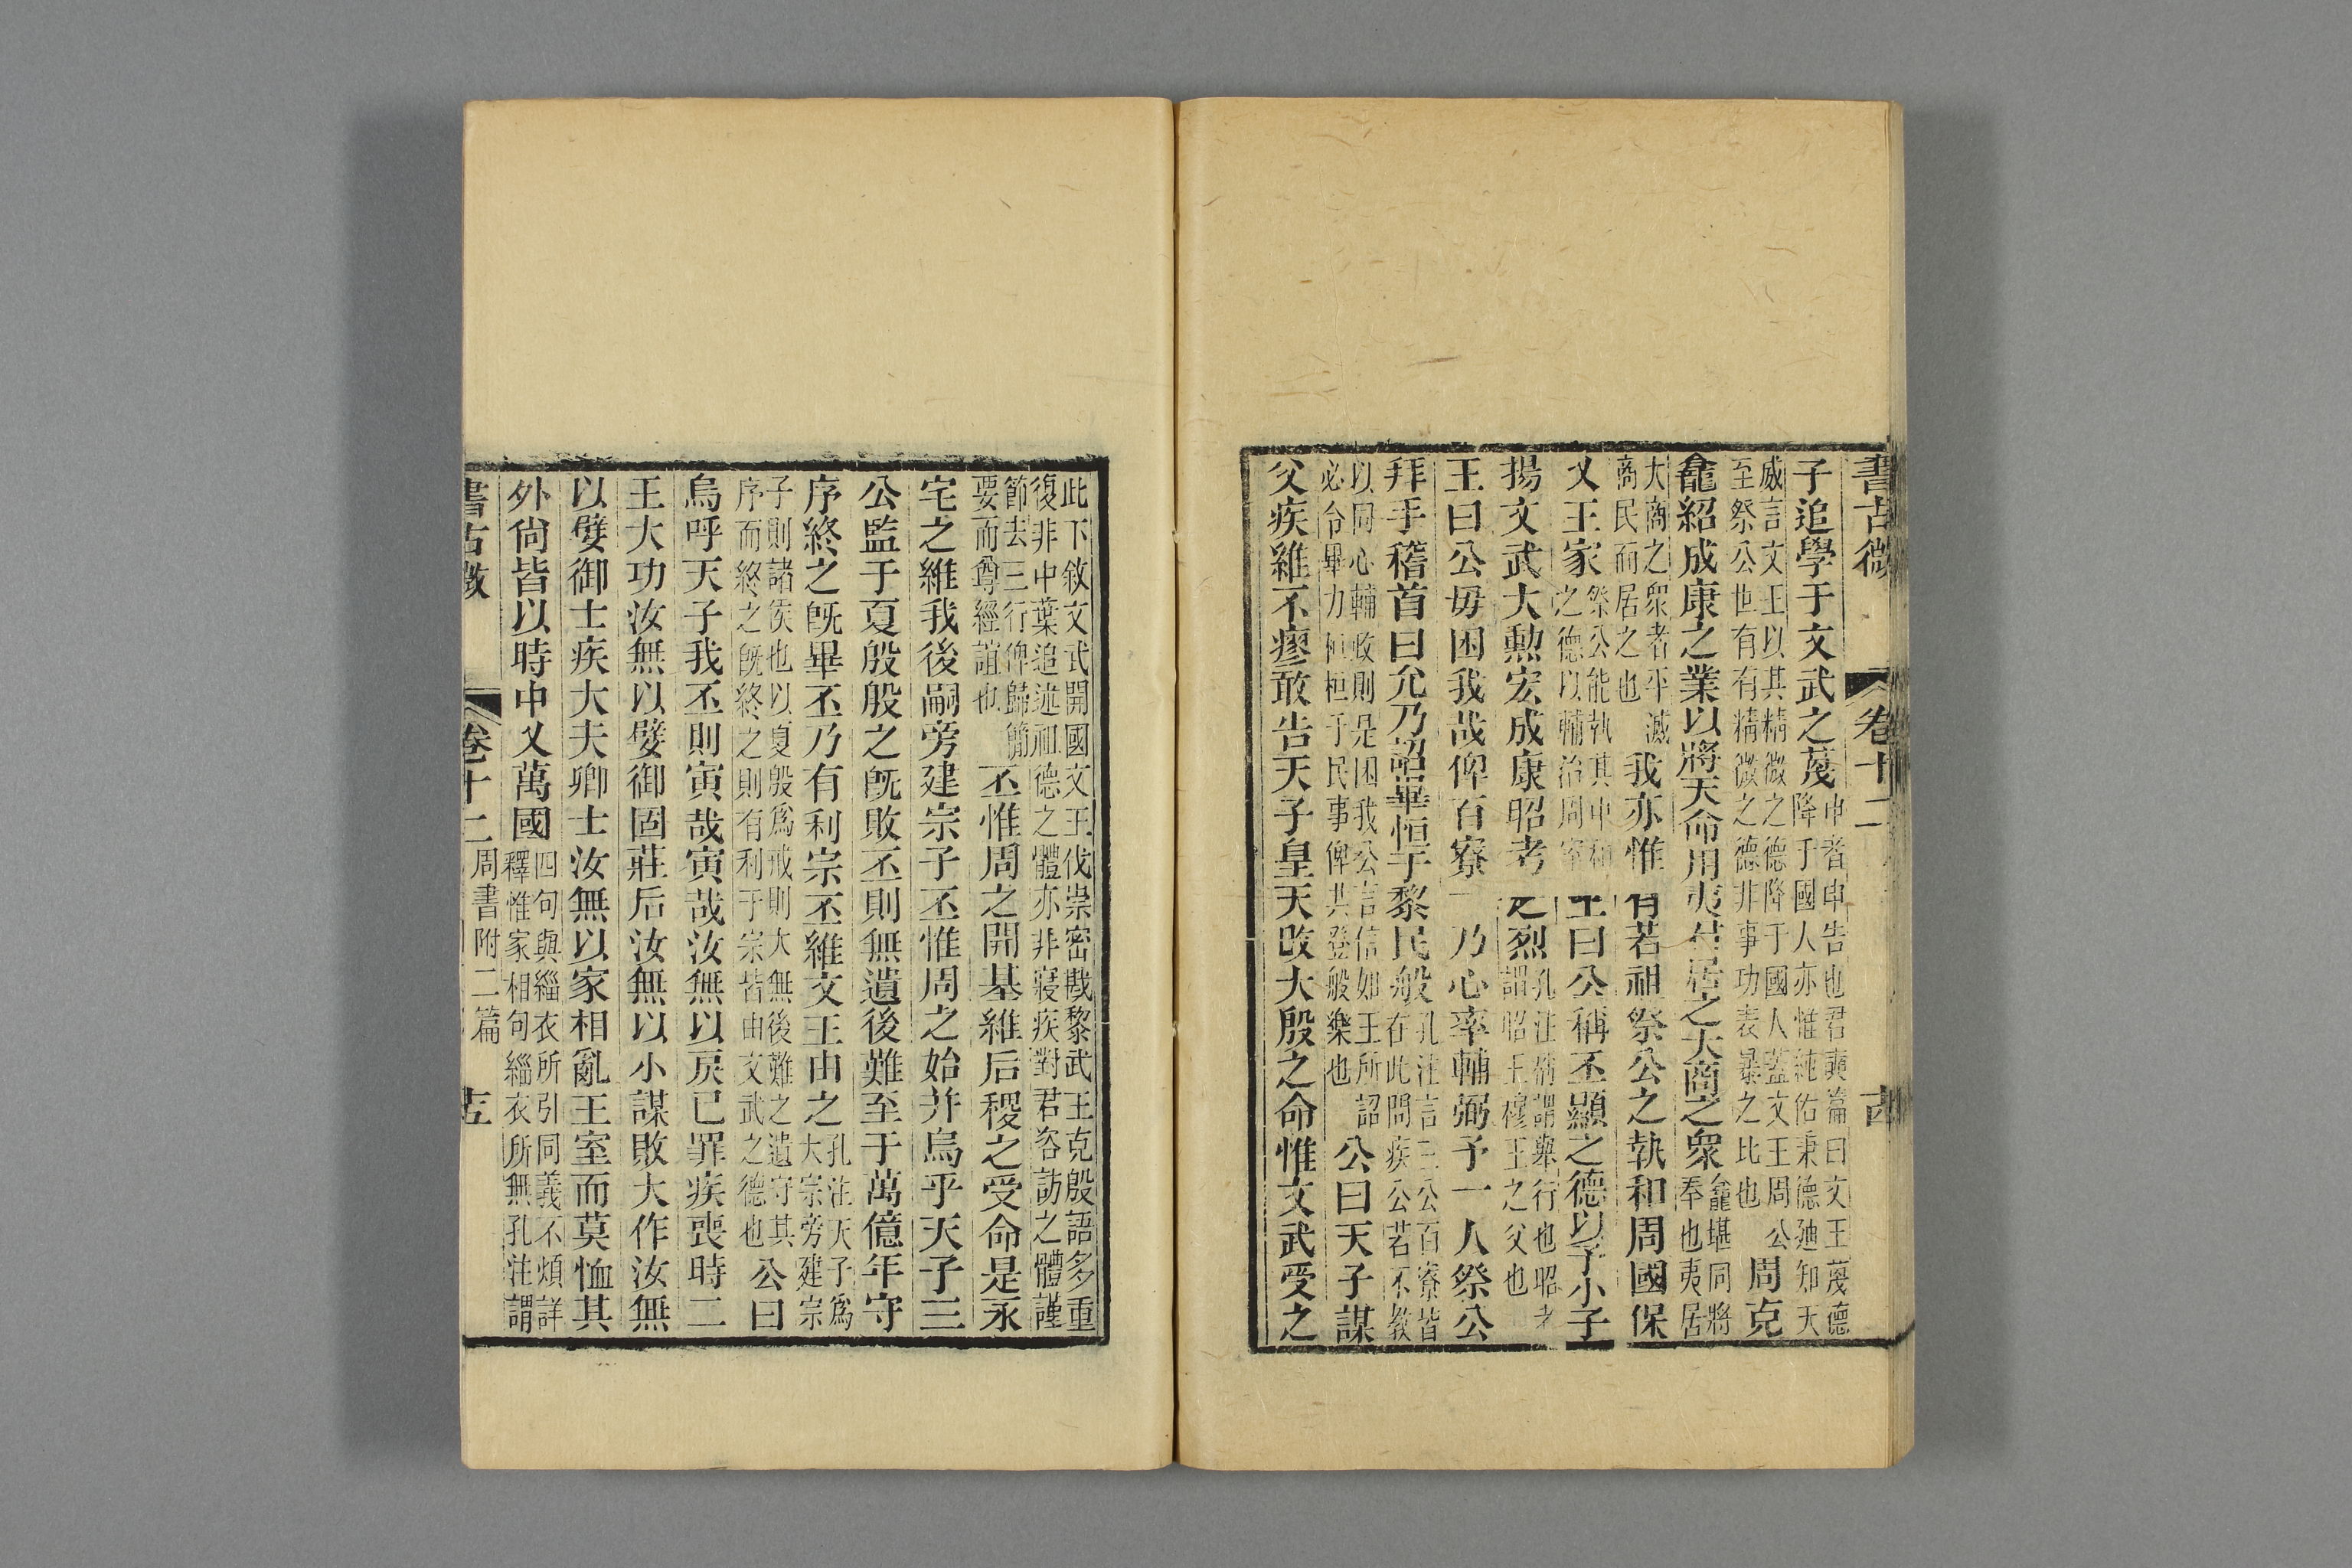 書古微 卷十二
子追學于文武之蔑申者申告也君奭篇曰文王蔑德降于國人亦惟純佑秉德廸知天
威言文王以其精微之德降于國人葢文王周公至祭公世有有精微之德非事功表暴之比也周克
龕紹成康之業以將天命用夷居之大商之衆龕堪同將奉也夷居
大商之衆者平滅商民而居之也我亦惟有若祖祭公之執和周國保
乂王家祭公能執其中和之德以輔治周室王曰公稱丕顯之德以予小子
揚文武大勲宏成康昭考之烈孔注稱謂舉行也昭考謂昭王穆王之父也
王曰公毋困我哉俾百寮乃心率輔弼予一人祭公
拜手稽首曰允乃詔畢恒于黎民般孔注言三公百寮皆在此問疾公若不教
以同心輔政則是困我公言信如王所詔必令畢力桓桓于民事俾共登般樂也公曰天子謀
父疾維不瘳敢告天子皇天改大殷之命惟文武受之
此下敘文武開國文王伐崇密戡黎武王克殷語多重復非中葉追述祖德之體亦非寢疾對君咨訪之體謹
節去三行俾歸簡要而尊經誼也丕惟周之開基維后稷之受命是永
宅之維我後嗣旁建宗子丕惟周之始幷烏乎天子三
公監于夏殷殷之旣敗丕則無遺後難至于萬億年守
序終之旣畢丕乃有利宗丕維文王由之孔注天子爲大宗旁建宗
子則諸侯也以夏殷爲戒則大無後難之遺守其序而終之旣終之則有利于宗皆由文武之德也公曰
烏呼天子我丕則寅哉寅哉汝無以戾已罪疾喪時二
王大功汝無以嬖御固莊后汝無以小謀敗大作汝無
以嬖御士疾大夫卿士汝無以家相亂王室而莫恤其
外尙皆以時中乂萬國四句與緇衣所引同義不煩詳釋惟家相句緇衣所無孔注謂
書古微 卷十二 周書附二篇